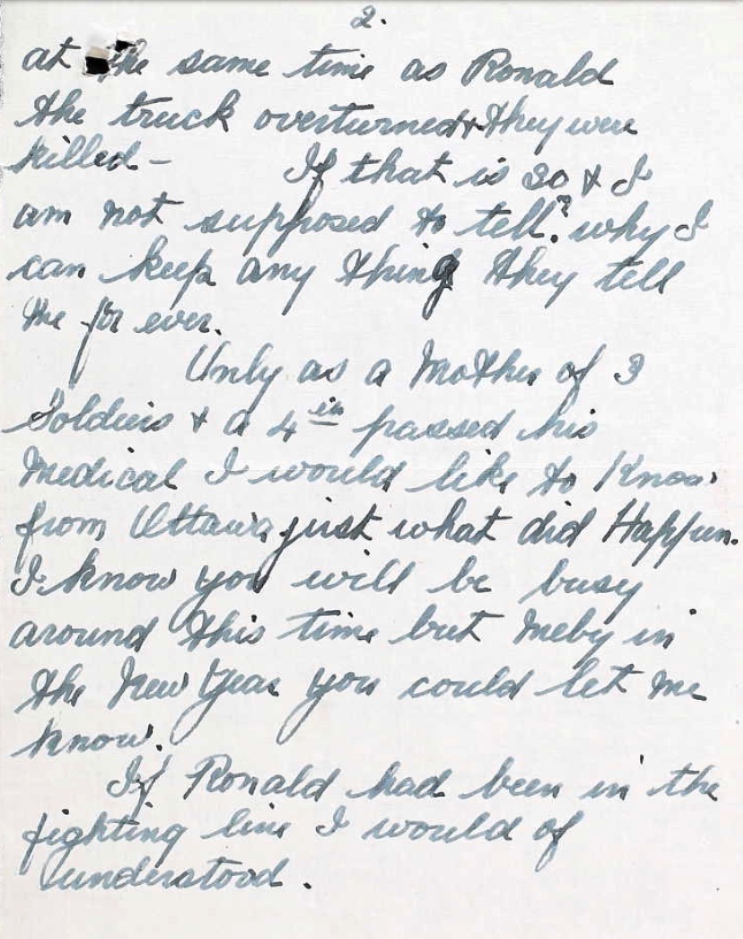 2.
at the same time as Ronald
the truck overturned & they were
killed - If that is so & I
am not supposed to tell? why I
can keep any thing they tell
me for ever.
Only as a Mother of 3
Soldiers & a 4 in passed his
Medical I would like to Know
from Ottawa just what did Happen.
I know you will be busy
around this time but meby in
the New Year you could let me
know.
If Ronald had been in the
fighting line I would of
understood.